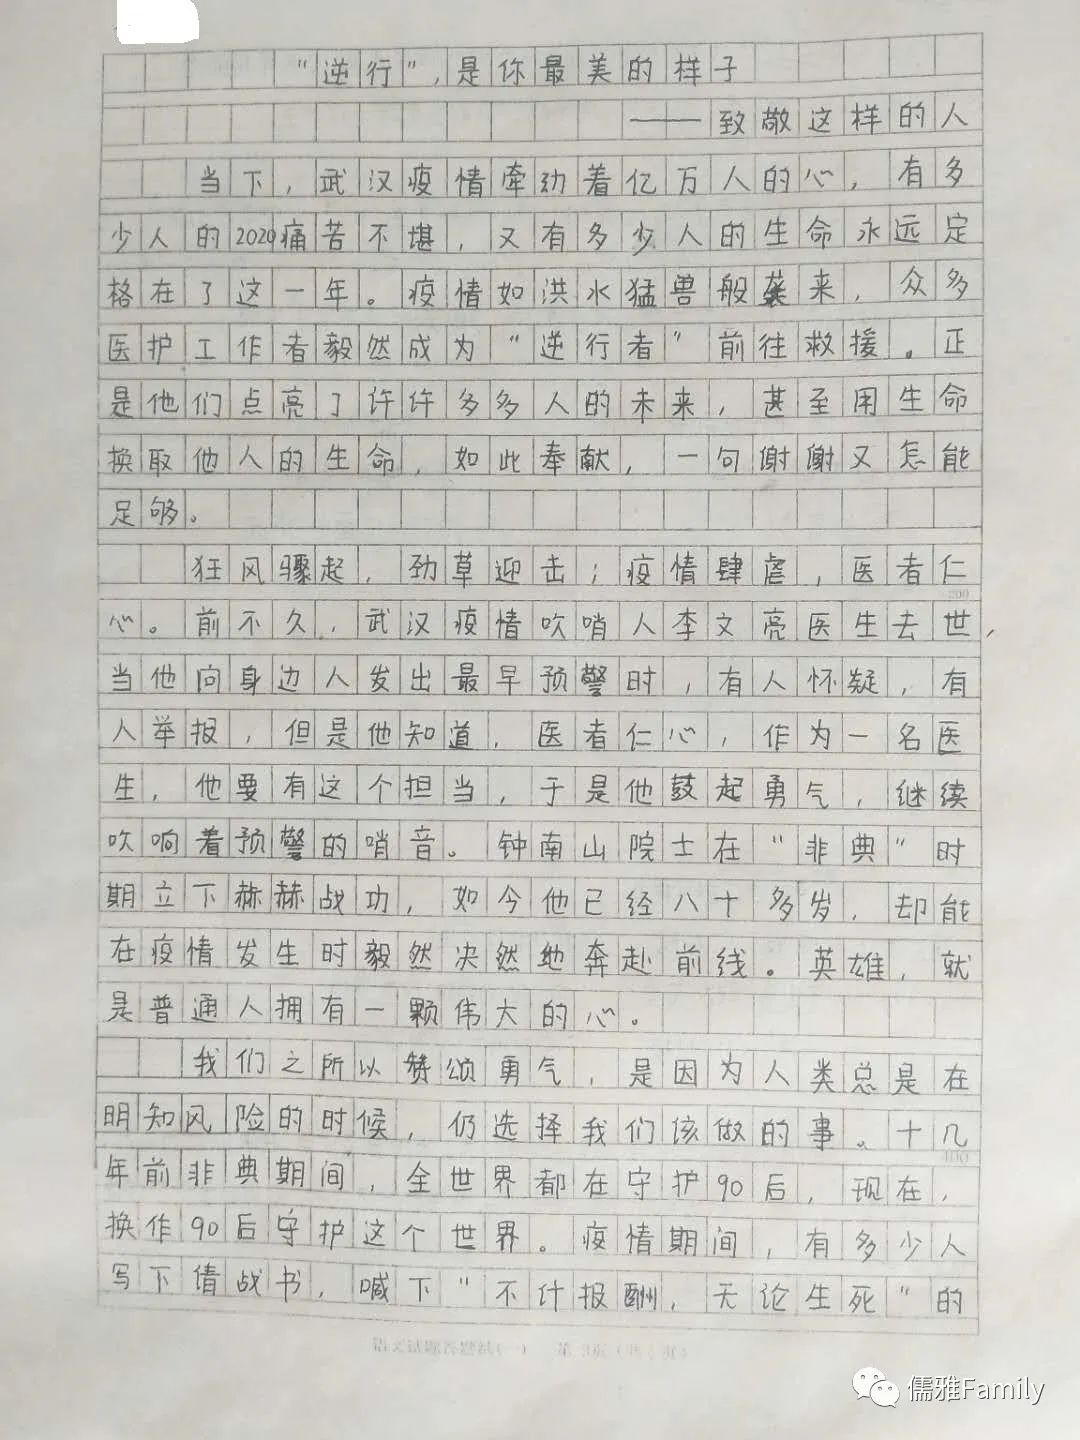 “逆行”，是你最美的样子
——致敬这样的人
当下，武汉疫情牵动着亿万人的心，有多
少人的2020痛苦不堪，又有多少人的生命永远定
格在了这一年。疫情如洪水猛兽般袭来，众多
医护工作者毅然成为“逆行者”前往救援。正
是他们点亮了许许多多人的未来，甚至用生命
换取他人的生命，如此奉献，一句谢谢又怎能
足够。
狂风骤起，劲草迎击；疫情肆虐，医者仁
心。前不久，武汉疫情吹哨人李文亮医生去世，
当他向身边人发出最早预警时，有人怀疑，有
人举报，但是他知道，医者仁心，作为一名医
生，他要有这个担当，于是他鼓起勇气，继续
吹响着预警的哨音。钟南山院士在“非典”时
期立下赫赫战功，如今他已经八十多岁，却能
在疫情发生时毅然决然地奔赴前线。英雄，就
是普通人拥有一颗伟大的心。
我们之所以赞颂勇气，是因为人类总是在
明知风险的时候，仍选择我们该做的事。十几
年前非典期间，全世界都在守护90后，现在，
换作90后守护这个世界。疫情期间，有多少人
写下请战书，喊下“不计报酬，无论生死”的
儒雅Family